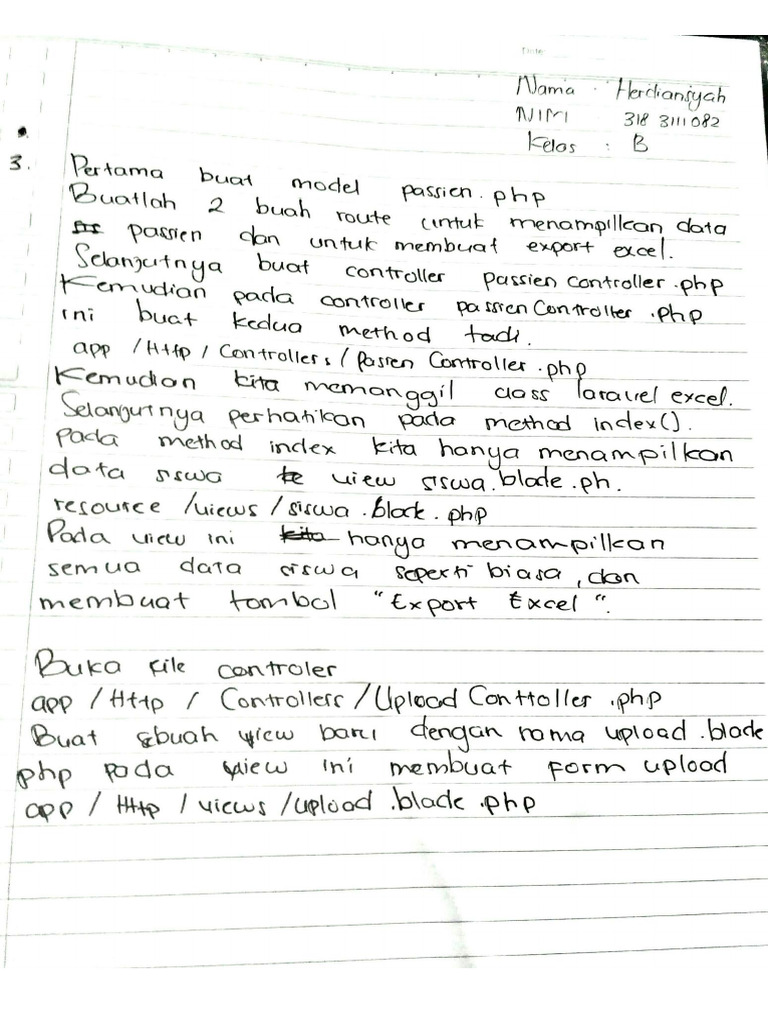 Date
Nama : Herdiansyah
NIM 318 3111 082
Kelas : B
3. Pertama buat model passien.php
Buatlah 2 buah route untuk menampilkan data
passien dan untuk membuat export excel.
Selanjutnya buat controller passien controller.php
Kemudian pada controller passien Controller.php
ini buat kedua method tadi.
app / Http / Controllers / Pasien Controller.php
Kemudian kita memanggil class laravel excel.
Selanjutnya perhatikan pada method index().
pada method index kita hanya menampilkan
data siswa ke view siswa.blade.ph.
resource /views / siswa.blade.php
Pada view ini kita hanya menampilkan
semua data siswa seperti biasa, dan
membuat tombol "Export Excel".
Buka file controler
app / Http / Controllers / Upload Controller.php
Buat sbuah view baru dengan nama upload.blade
php pada view ini membuat form upload
app / Http / views /upload.blade.php